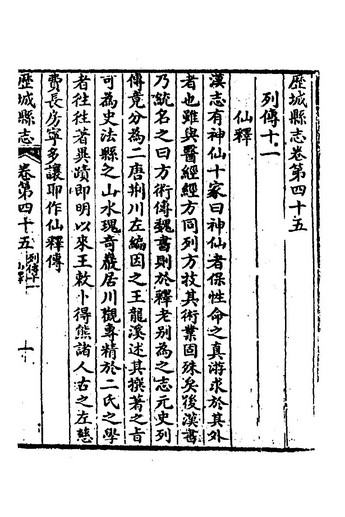 歷城縣志卷第四十五
列傳十一
仙釋
漢志有神仙十家曰神仙者保性命之真游求於其外
者也雖與醫經經方同列方技其術業固殊矣後漢書
乃統名之曰方術傳魏書則於釋老别為之志元史列
傳竟分為二唐荆川左編因之王龍溪述其撰著之旨
可為史法縣之山水瑰奇巖居川觀專精於二氏之學
者往往著異蹟即明以來王敕卜得熊諸人古之左慈
費長房寧多讓耶作仙釋傳
歷城縣志
卷第四十五
列傳十一
仙釋
一